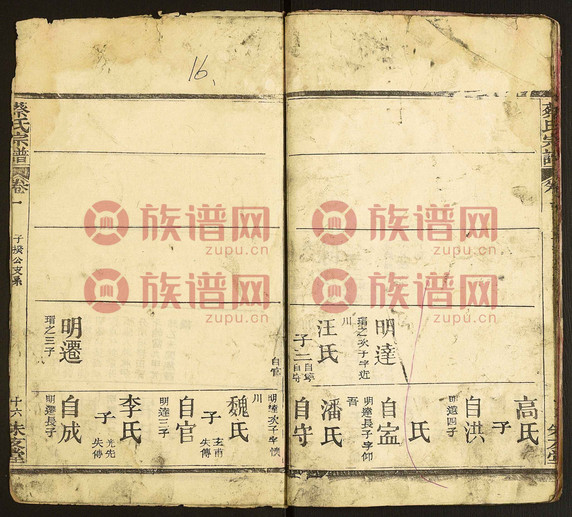 16.
蔡氏宗譜
明達
瑞之次子字近川
汪氏
子二
自寧
自守
高氏
自洪
明遠四子
氏
自寍
明達長子字仰吾
潘氏
自守
蔡氏宗譜 卷一
子揆公支系
十六
明遷
瑞之三子
自官
明達次子字懷川
魏氏
自官
明達三子
子
玄甫
失傳
李氏
子
光先
失傳
自成
明遷長子
族谱网
zupu.cn
族谱网
zupu.cn
族谱网
zupu.cn
族谱网
zupu.cn